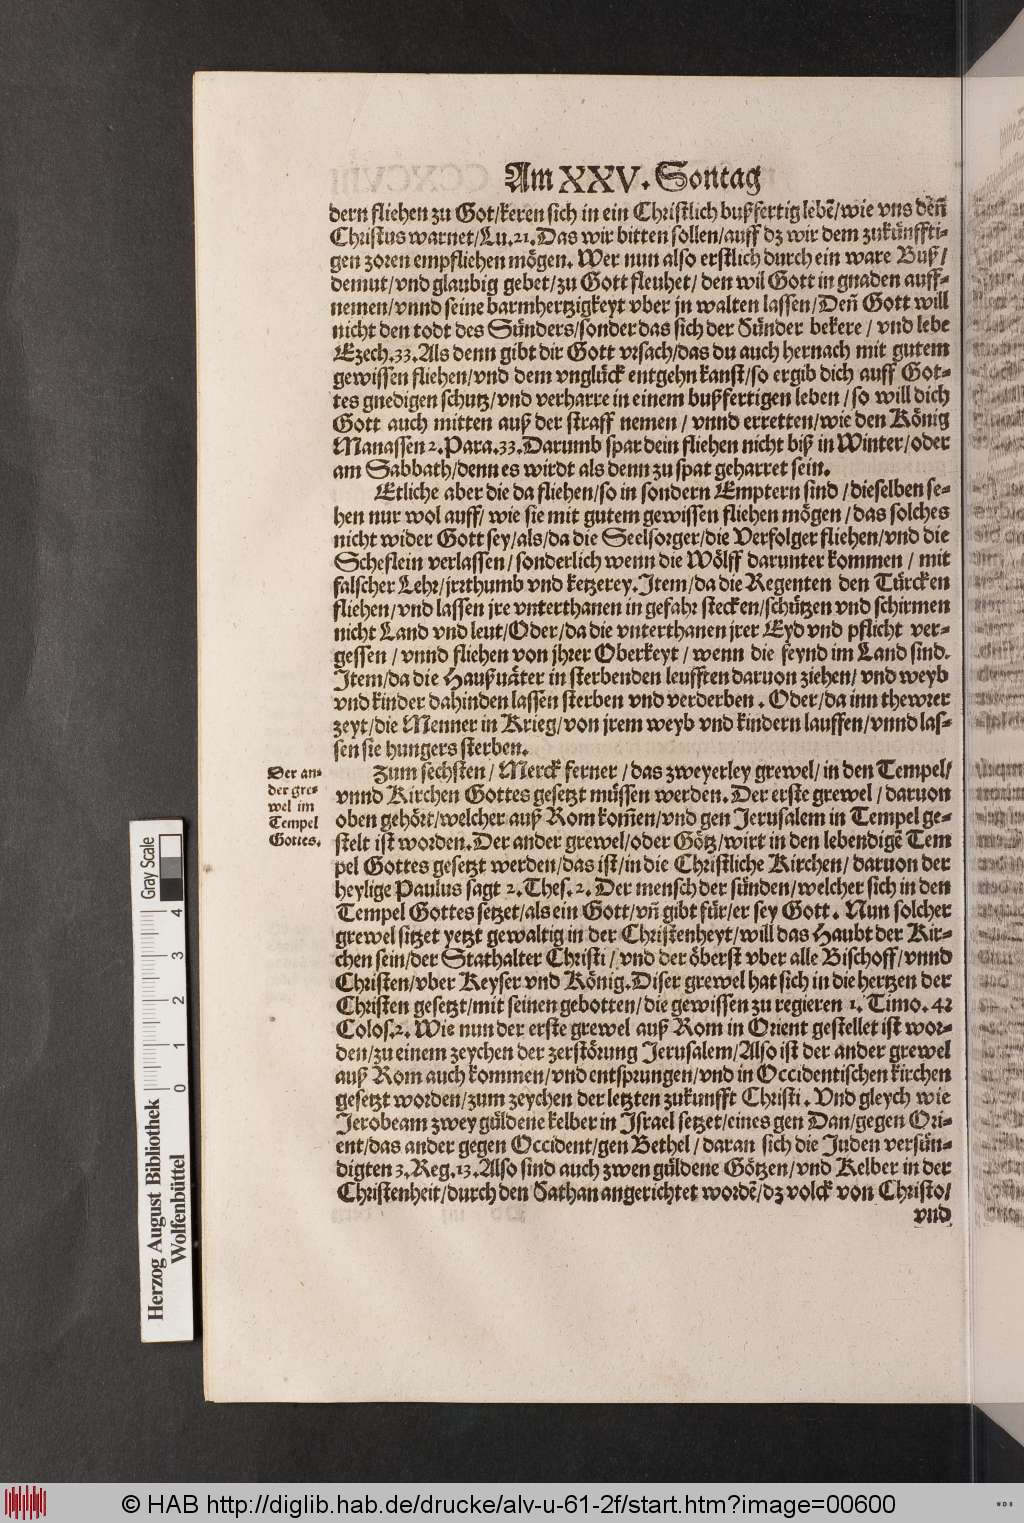 Am XXV. Sontag
dern fliehen zu Got/keren sich in ein Christlich bußfertig lebẽ/wie vns deñ
Christus warnet/Lu. 21. Das wir bitten sollen/auff dz wir dem zukünffti-
gen zoren empfliehen mögen. Wer nun also erstlich durch ein ware Buß/
demut/vnd glaubig gebet/zu Gott fleuhet/den wil Gott in gnaden auff-
nemen/vnnd seine barmhertzigkeyt vber jn walten lassen/Deñ Gott will
nicht den todt des Sünders/sonder das sich der Sünder bekere/vnd lebe
Ezech. 33. Als denn gibt dir Gott vrsach/das du auch hernach mit gutem
gewissen fliehen/vnd dem vnglück entgehn kanst/so ergib dich auff Got-
tes gnedigen schutz/vnd verharre in einem bußfertigen leben/so will dich
Gott auch mitten auß der straff nemen/vnnd erretten/wie den König
Manassen 2. Para. 33. Darumb spar dein fliehen nicht biß in Winter/oder
am Sabbath/denn es wirdt als denn zu spat geharret sein.
Etliche aber die da fliehen/so in sondern Emptern sind/dieselben se-
hen nur wol auff/wie sie mit gutem gewissen fliehen mögen/das solches
nicht wider Gott sey/als/da die Seelsorger/die Verfolger fliehen/vnd die
Scheflein verlassen/sonderlich wenn die Wölff darunter kommen/mit
falscher Lehr/jrrthumb vnd ketzerey. Item/da die Regenten den Türcken
fliehen/vnd lassen jre vnterthanen in gefahr stecken/schützen vnd schirmen
nicht Land vnd leut/Oder/da die vnterthanen jrer Eyd vnd pflicht ver-
gessen/vnnd fliehen von jhrer Oberkeyt/wenn die feynd im Land sind.
Item/da die Haußuäter in sterbenden leufften daruon ziehen/vnd weyb
vnd kinder dahinden lassen sterben vnd verderben. Oder/da inn thewrer
zeyt/die Menner in Krieg/von jrem weyb vnd kindern lauffen/vnnd las-
sen sie hungers sterben.
Zum sechsten/Merck ferner/das zweyerley grewel/in den Tempel/
vnnd Kirchen Gottes gesetzt müssen werden. Der erste grewel/daruon
oben gehört/welcher auß Rom kom̃en/vnd gen Jerusalem in Tempel ge-
stelt ist worden. Der ander grewel/oder Götz/wirt in den lebendigẽ Tem
pel Gottes gesetzt werden/das ist/in die Christliche Kirchen/daruon der
heylige Paulus sagt 2. Thes. 2. Der mensch der sünden/welcher sich in den
Tempel Gottes setzet/als ein Gott/vñ gibt für/er sey Gott. Nun solcher
grewel sitzet yetzt gewaltig in der Christenheyt/will das Haubt der Kir-
chen sein/der Stathalter Christi/vnd der öberst vber alle Bischoff/vnnd
Christen/vber Keyser vnd König. Diser grewel hat sich in die hertzen der
Christen gesetzt/mit seinen gebotten/die gewissen zu regieren 1. Timo. 4.
Colos. 2. Wie nun der erste grewel auß Rom in Orient gestellet ist wor-
den/zu einem zeychen der zerstörung Jerusalem/Also ist der ander grewel
auß Rom auch kommen/vnd entsprungen/vnd in Occidentischen kirchen
gesetzt worden/zum zeychen der letzten zukunfft Christi. Vnd gleych wie
Jerobeam zwey güldene kelber in Israel setzet/eines gen Dan/gegen Ori-
ent/das ander gegen Occident/gen Bethel/daran sich die Juden versün-
digten 3. Reg. 13. Also sind auch zwen güldene Götzen/vnd Kelber in der
Christenheit/durch den Sathan angerichtet wordẽ/dz volck von Christo/
vnd
Der an-
der gre-
wel im
Tempel
Gottes.
Gray Scale
4 3 2 1 0
Herzog August Bibliothek
Wolfenbüttel
© HAB http://diglib.hab.de/drucke/alv-u-61-2f/start.htm?image=00600